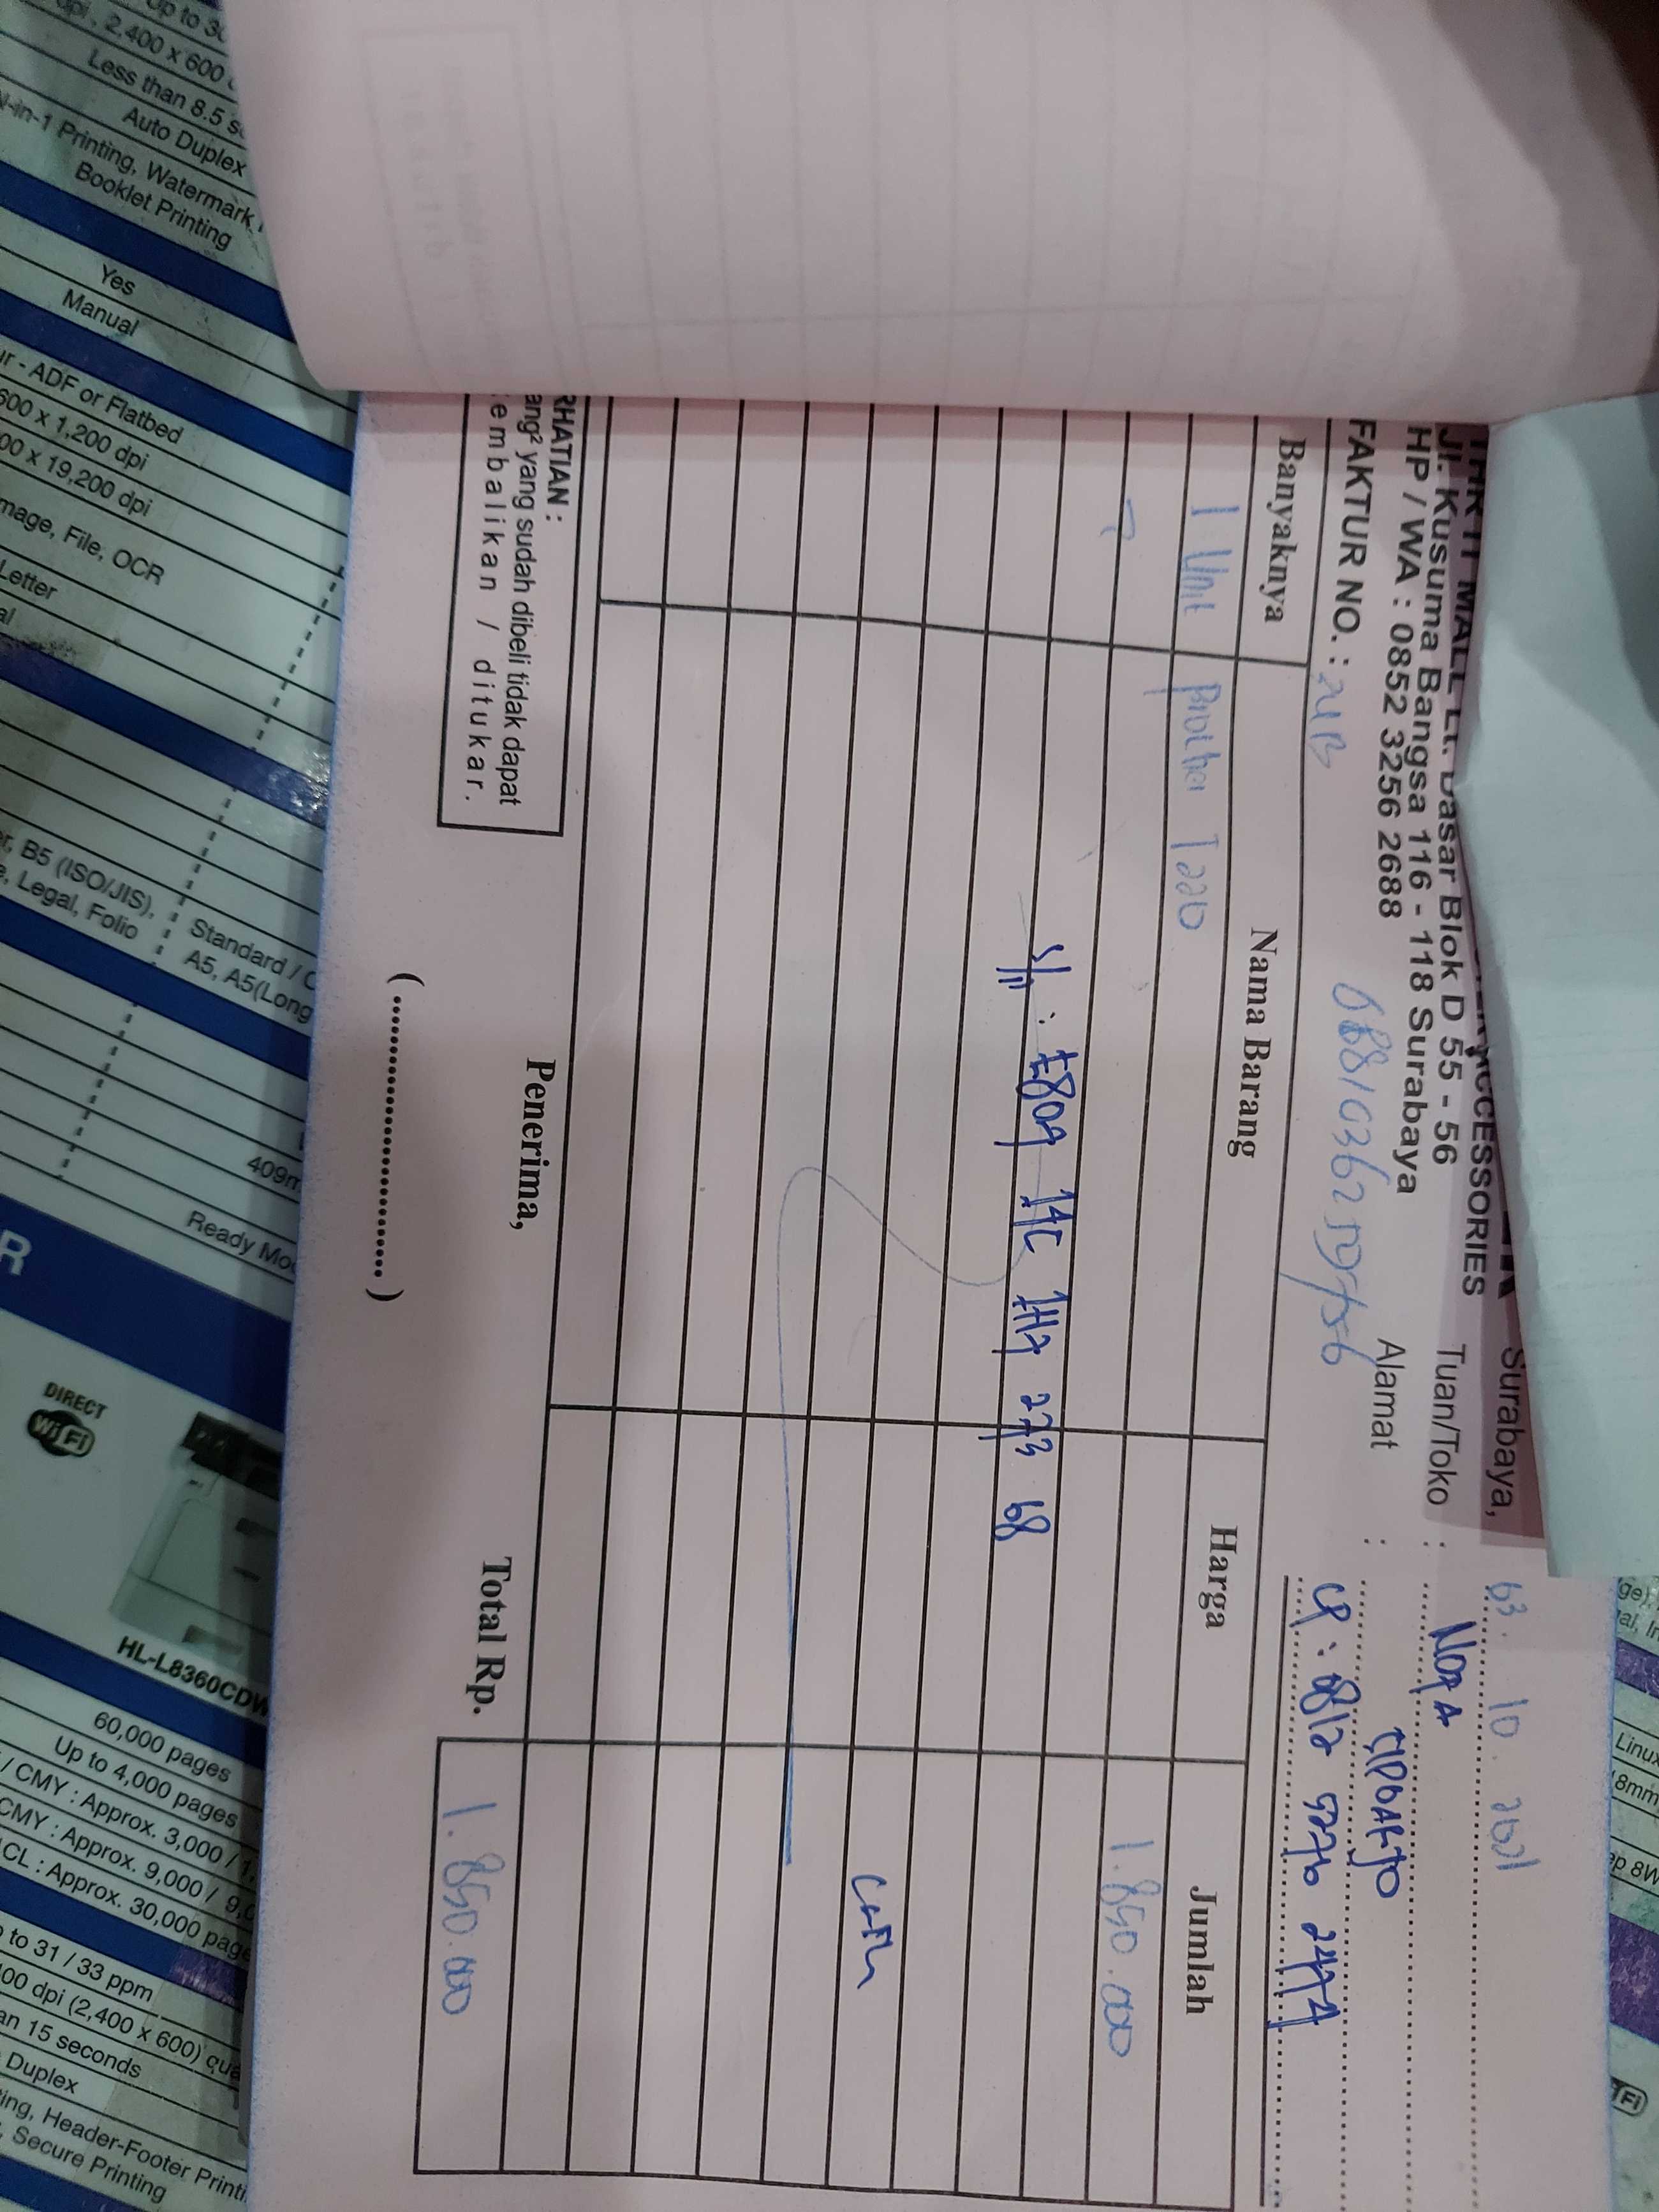 Surabaya, 03. 10. 2021
CCESSORIES
MALL Lt. Dasar Blok D 55 - 56
Tuan/Toko :
Jl. Kusuma Bangsa 116 - 118 Surabaya
HP / WA : 0852 3256 2688
Alamat :
SIDOARJO
FAKTUR NO. :
CP : 0812 5276 2474
Banyaknya Nama Barang Harga Jumlah
1 Unit Brother T220 1.850.000
S/N : E809 14C 1H7 273 68
Cash
RHATIAN :
ang² yang sudah dibeli tidak dapat
embalikan / ditukar.
Penerima,
(..............................)
Total Rp. 1.850.000
2,400 x 600
Less than 8.5 s
Auto Duplex
-in-1 Printing, Watermark
Booklet Printing
Yes
Manual
ur - ADF or Flatbed
600 x 1,200 dpi
00 x 19,200 dpi
mage, File, OCR
Letter
B5 (ISO/JIS),
Legal, Folio
Standard /
A5, A5(Long
409m
R
DIRECT
WiFi
HL-L8360CDW
60,000 pages
Up to 4,000 pages
/ CMY : Approx. 3,000 / 1,
CMY : Approx. 9,000 / 9,0
CL : Approx. 30,000 page
to 31 / 33 ppm
00 dpi (2,400 x 600) qua
an 15 seconds
Duplex
ing, Header-Footer Printi
Secure Printing
Linux
8mm